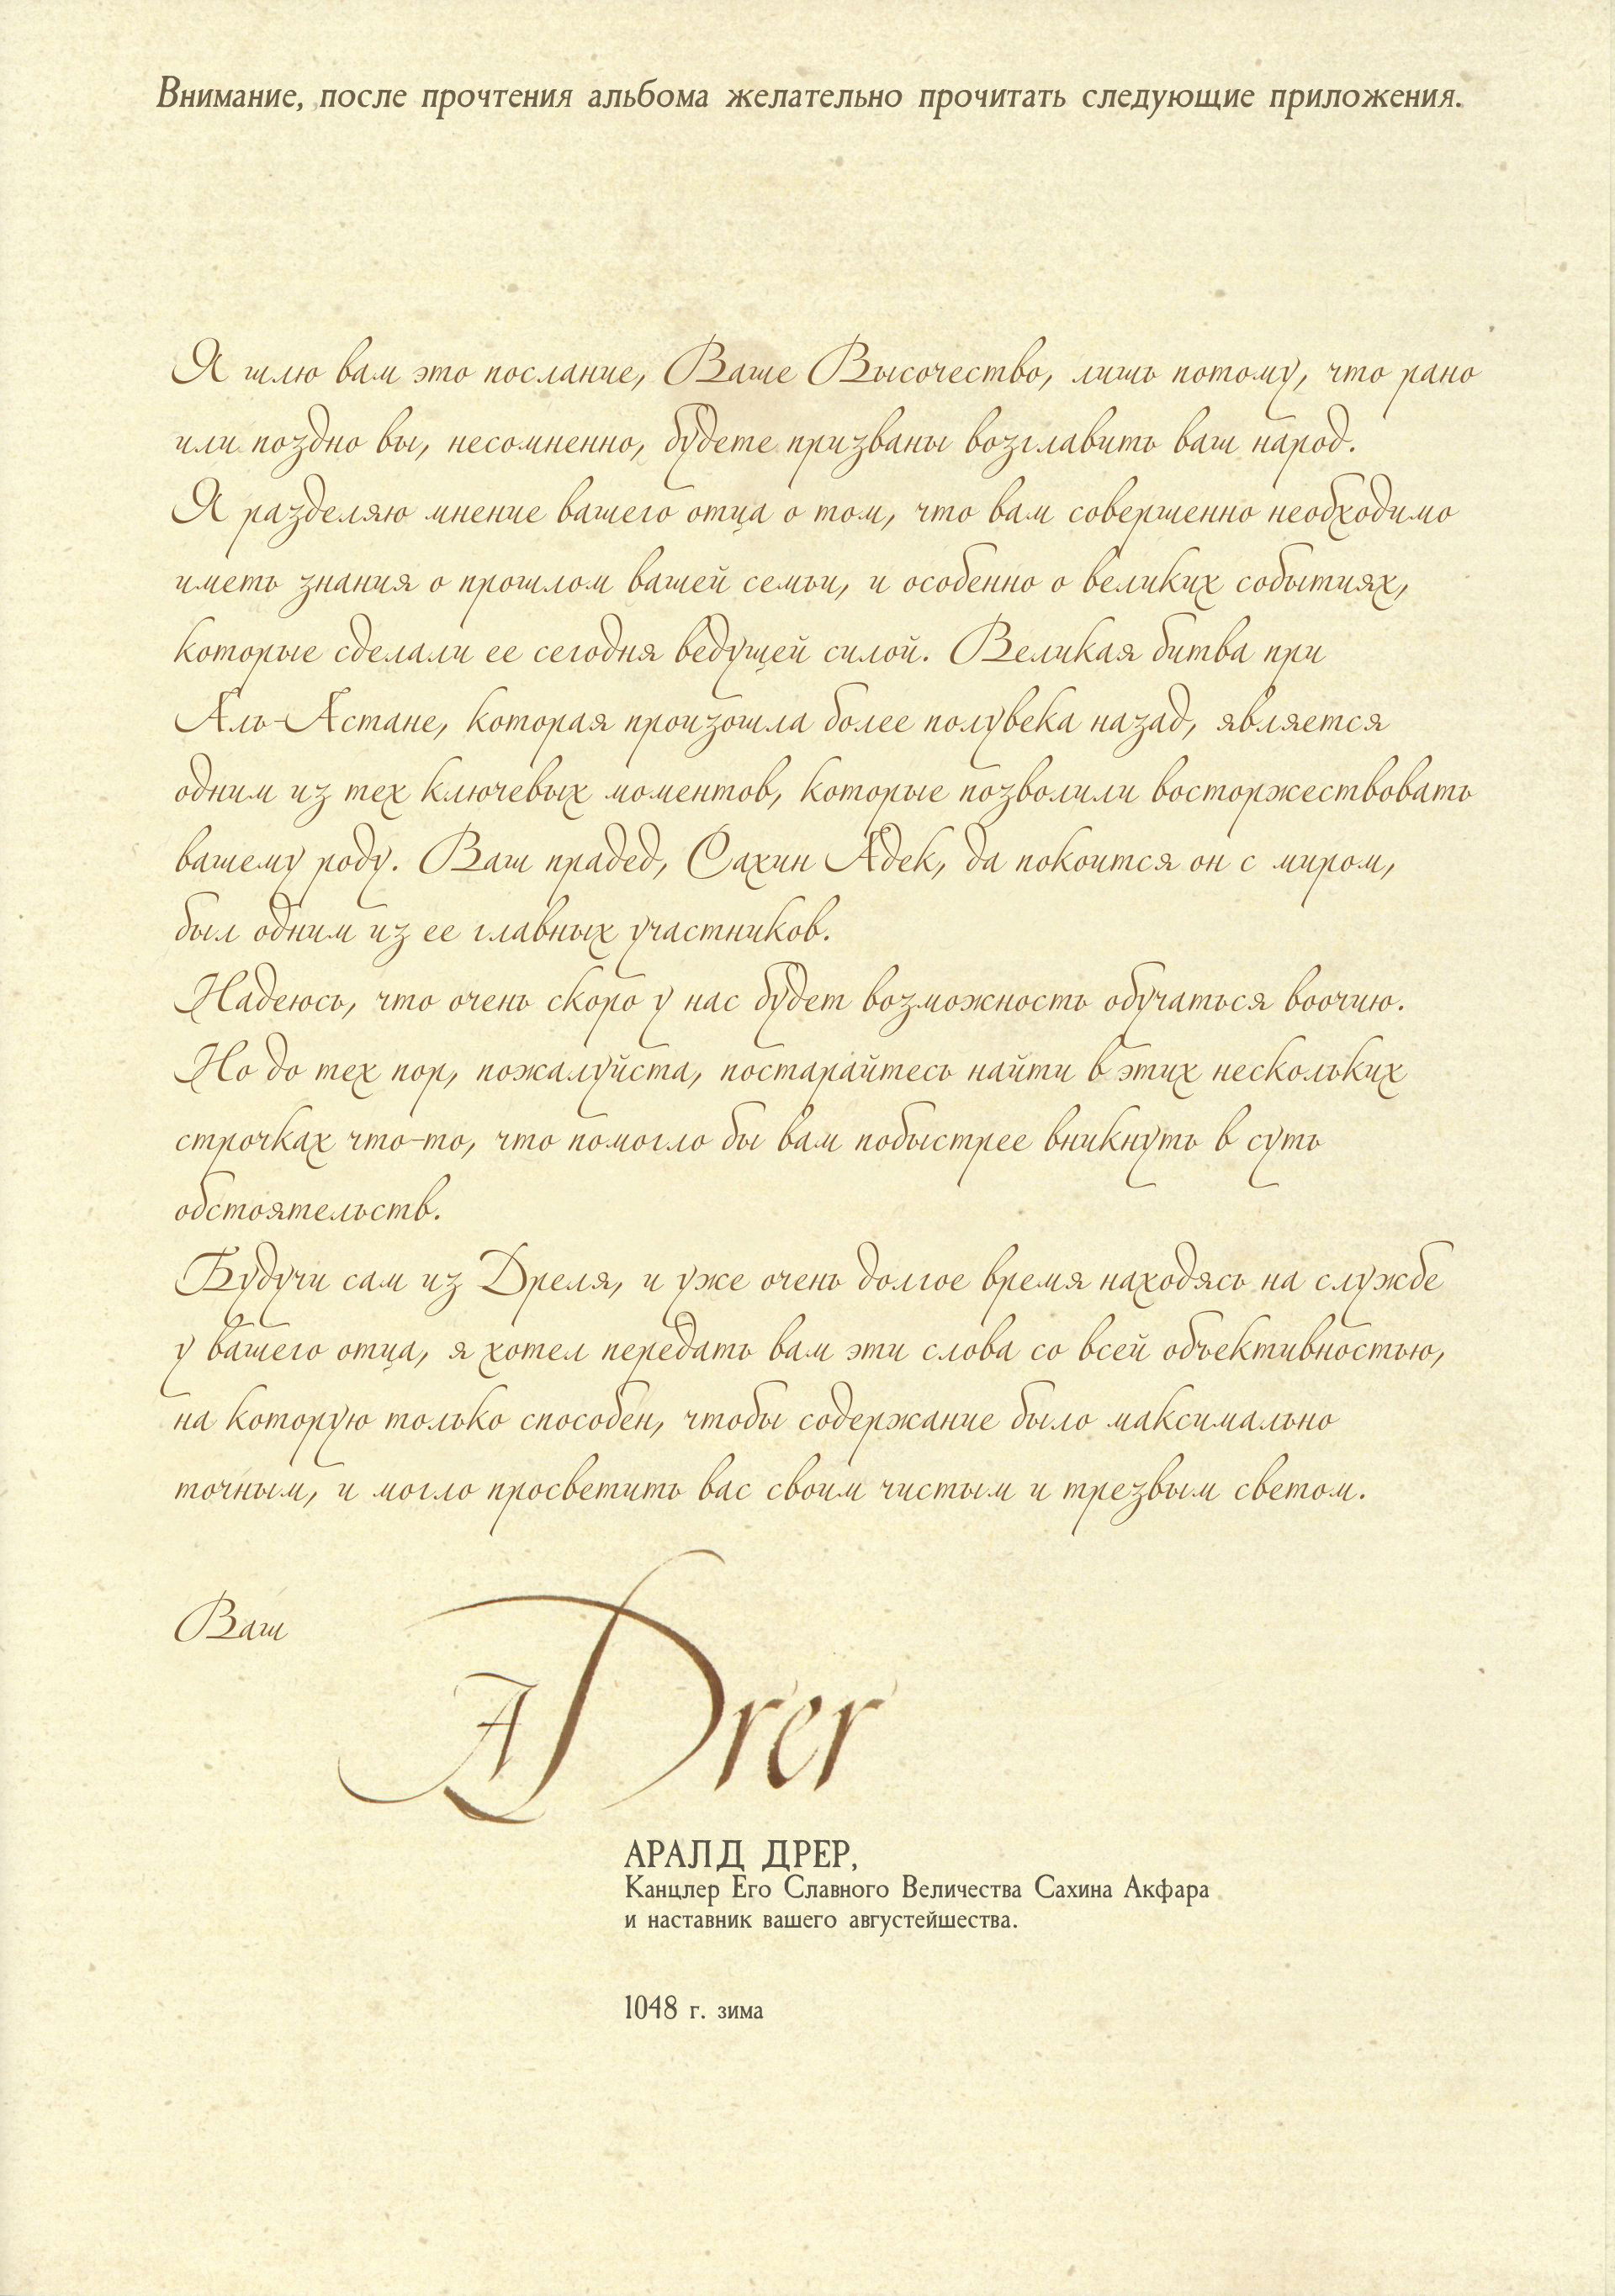 Внимание, после прочтения альбома желательно прочитать следующие приложения.
Я шлю вам это послание, Ваше Высочество, лишь потому, что рано
или поздно вы, несомненно, будете призваны возглавить ваш народ.
Я разделяю мнение вашего отца о том, что вам совершенно необходимо
иметь знания о прошлом вашей семьи, и особенно о великих событиях,
которые сделали ее сегодня ведущей силой. Великая битва при
Аль-Астане, которая произошла более полувека назад, является
одним из тех ключевых моментов, которые позволили восторжествовать
вашему роду. Ваш прадед, Сахин Адек, да покоится он с миром,
был одним из ее главных участников.
Надеюсь, что очень скоро у нас будет возможность обучаться воочию.
Но до тех пор, пожалуйста, постарайтесь найти в этих нескольких
строчках что-то, что помогло бы вам побыстрее вникнуть в суть
обстоятельств.
Будучи сам из Дреля, и уже очень долгое время находясь на службе
у вашего отца, я хотел передать вам эти слова со всей объективностью,
на которую только способен, чтобы содержание было максимально
точным, и могло просветить вас своим чистым и трезвым светом.
Ваш
A Drer
АРАЛД ДРЕР,
Канцлер Его Славного Величества Сахина Акфара
и наставник вашего августейшества.
1048 г. зима